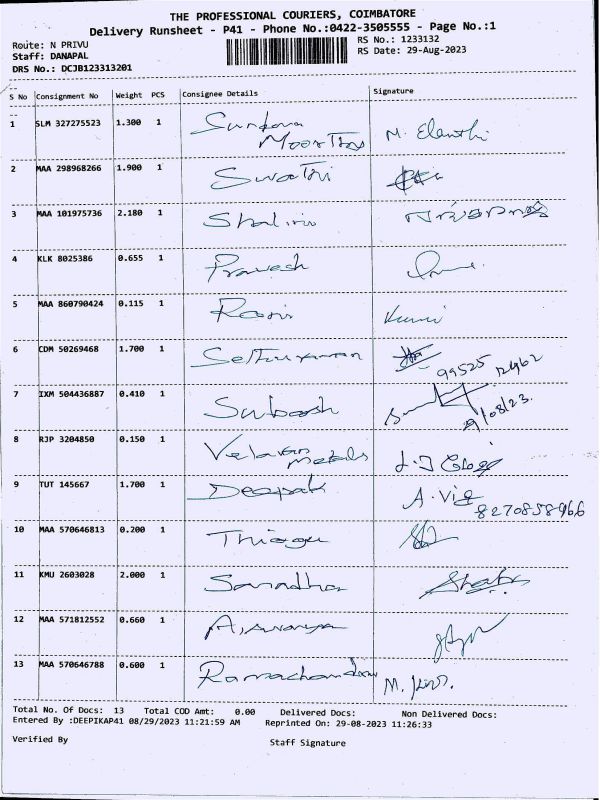 THE PROFESSIONAL COURIERS, COIMBATORE
Delivery Runsheet - P41 - Phone No.:0422-3505555 - Page No.:1
Route: N PRIVU
RS No.: 1233132
Staff: DANAPAL
RS Date: 29-Aug-2023
DRS No.: DCJB123313201
S No Consignment No Weight PCS Consignee Details Signature
1 SLM 327275523 1.300 1 Sundara
Moorthy M.
2 MAA 298968266 1.900 1 Swathi
3 MAA 101975736 2.180 1 Shalini
4 KLK 8025386 0.655 1 Pravesh
5 MAA 860790424 0.115 1 Ravi Kumi
6 CDM 50269468 1.700 1 Sethuraman
99525 12462
7 IXM 504436887 0.410 1 Subash
9/08/23.
8 RJP 3204850 0.150 1 Velavan
Metals
9 TUT 145667 1.700 1 Deepak A.
8270858966
10 MAA 570646813 0.200 1 Thiagu
11 KMU 2603028 2.000 1
12 MAA 571812552 0.660 1
13 MAA 570646788 0.600 1 Ramachandran M.
Total No. Of Docs: 13 Total COD Amt: 0.00 Delivered Docs: Non Delivered Docs:
Entered By :DEEPIKAP41 08/29/2023 11:21:59 AM Reprinted On: 29-08-2023 11:26:33
Verified By Staff Signature